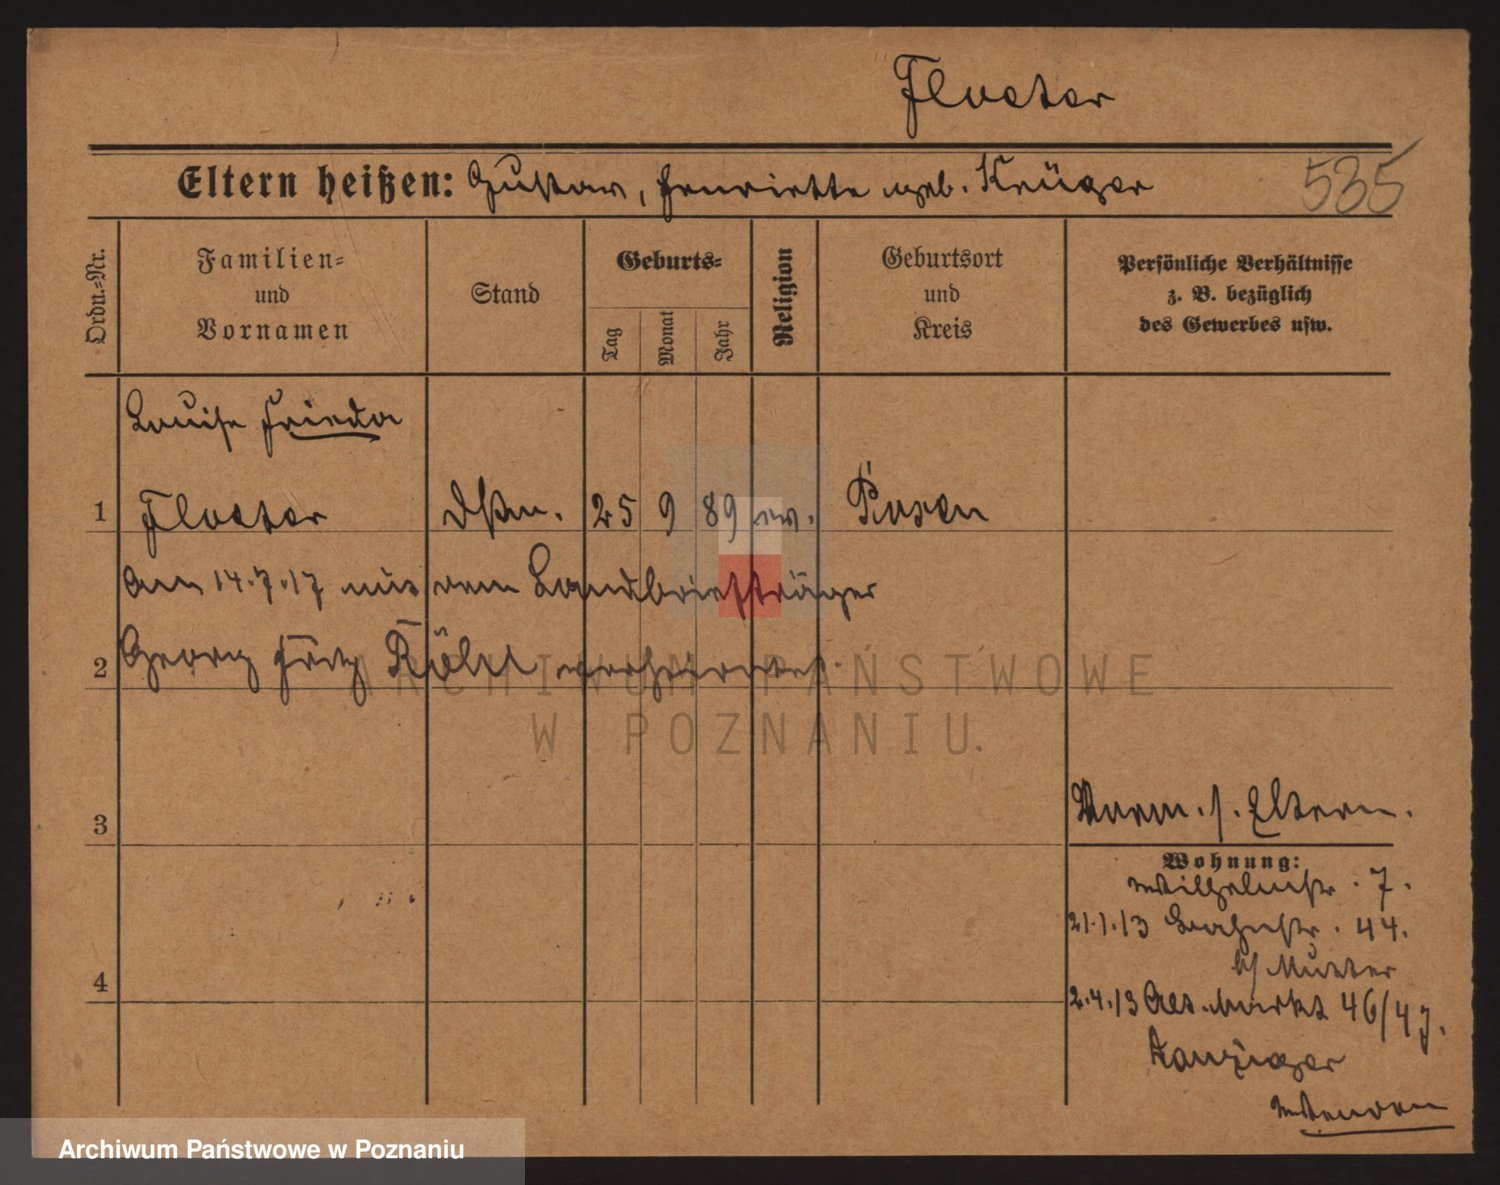 Floeter
Eltern heißen: Gustav, Henriette geb. Krüger
535
Ordn.-Nr.
Familien- und Vornamen
Stand
Geburts-
Tag
Monat
Jahr
Religion
Geburtsort und Kreis
Persönliche Verhältnisse z. B. bezüglich des Gewerbes usw.
Louise Frieda
1 Floeter 25 9 89 ev. Posen
am 14.7.17 mit dem Landbriefträger
2 Georg Fritz verheiratet.
3
Eltern.
Wohnung:
Wilhelmstr. 7.
21.1.13 Bahnstr. 44.
b/ Mutter
4
2.4.13 Alt. Markt 46/47.
ARCHIWUM PAŃSTWOWE
W POZNANIU.
Archiwum Państwowe w Poznaniu